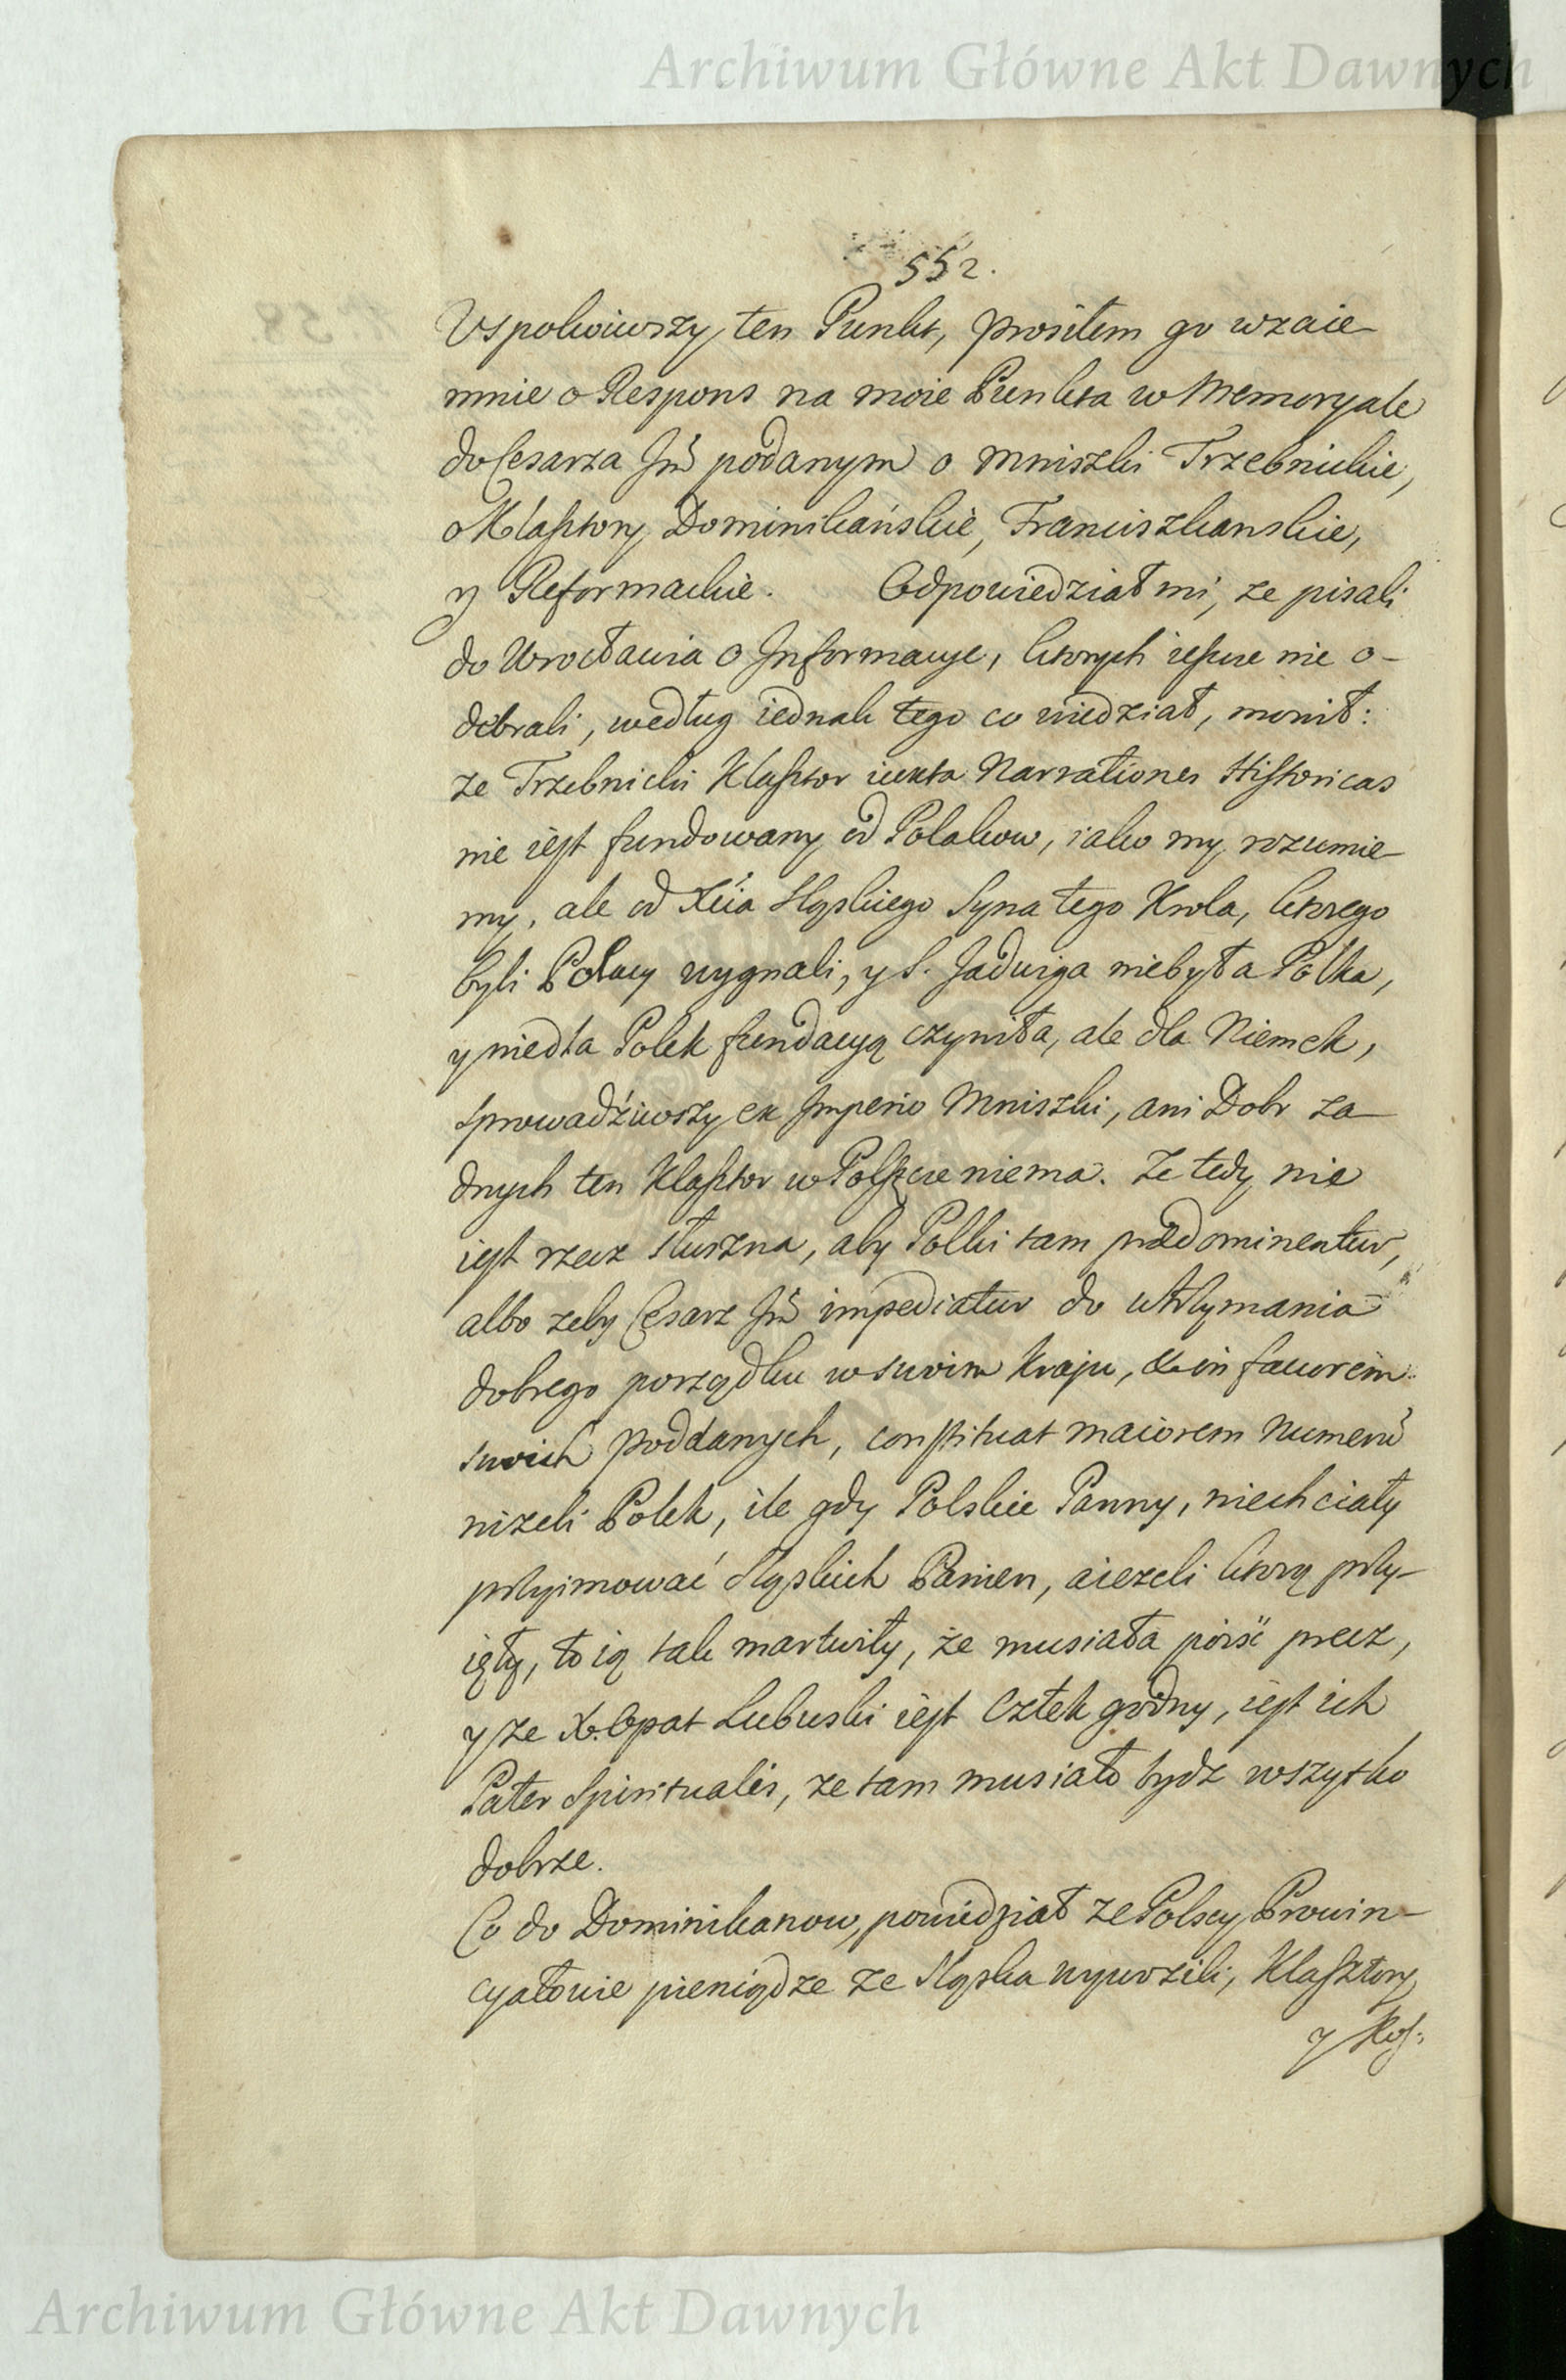 Archiwum Główne Akt Dawnych
552.
Uspokoiwszy ten Punkt, prosiłem go wzaie-
mnie o Respons na moie Punkta w Memoryale
do Cesarza Jm̃ podanym o Mniszki Trzebnickie,
o Klasztory Dominikańskie, Franciszkanskie,
y Reformackie. Odpowiedział mi, ze pisali
do Wrocławia o Informacye, ktorych ieszcze nie o-
debrali, według iednak tego co wiedział, monił:
ze Trzebnicki Klasztor iuxta Narrationes Historicas
nie iest fundowany od Polakow, iako my rozumie-
my, ale od Xcia Sląskiego Syna tego Krola, ktorego
byli Polacy wygnali, y S. Jadwiga niebyła Polka,
y niedla Polek fundacyą czyniła, ale dla Niemek,
sprowadźiwszy ex Imperio Mniszki, ani Dobr za-
dnych ten Klasztor w Polszcze niema. Ze tedy nie
iest rzecz słuszna, aby Polki tam prædominentur,
albo zeby Cesarz Jm̃ impediatur do utrzymania
dobrego porządku w swoim kraju, & in favorem
swoich poddanych, constituat maiorem numerũ
nizeli Polek, ile gdy Polskie Panny, niechciały
przyimować Sląskich Panien, aiezeli ktorą przy-
ięły, to ią tak martwiły, że musiała póiść precz,
y ze X. Opat Lubuski iest Człek godny, iest ich
Pater Spiritualis, ze tam musiało bydz wszytko
dobrze.
Co do Dominikanow, powiedział ze Polscy Prowin-
cyałowie pieniądze ze Sląska wywozili, Klasztory
y Kos:
Archiwum Główne Akt Dawnych